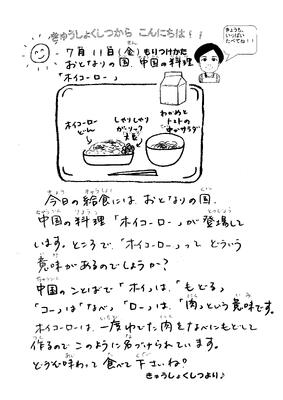 きゅうしょくしつから こんにちは!!
きょうも、
いっぱい
たべてね!!
7月11日(金) もりつけかた
おとなりの国、中国の料理
「ホイコーロー」
ホイコーロー
どん
しゃりしゃり
わかめと
トマトの
中かサラダ
今日の給食には、おとなりの国、
中国の料理「ホイコーロー」が登場して
います。ところで、「ホイコーロー」って どういう
意味があるのでしょうか?
中国のことばで「ホイ」は、「もどる」
「コー」は「なべ」「ロー」は、「肉」という意味です。
ホイコーローは、一度ゆでた肉をなべにもどして
作るのでこのように名づけられています。
どうぞ味わって食べて下さいね。
きゅうしょくしつより♪